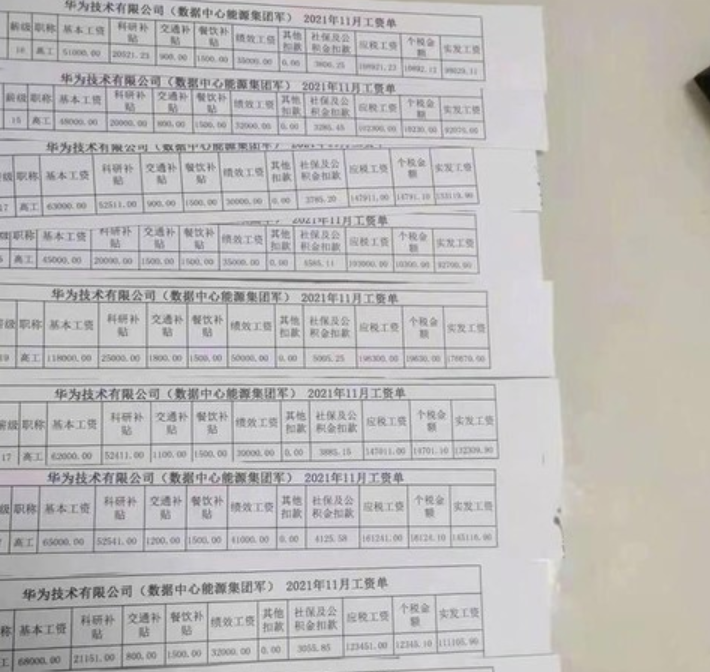 华为技术有限公司（数据中心能源集团军） 2021年11月工资单
薪级 职称 基本工资 科研补贴 交通补贴 餐饮补贴 绩效工资 其他扣款 社保及公积金扣款 应税工资 个税金额 实发工资
16 高工 51000.00 20521.23 900.00 1500.00 35000.00 0.00
华为技术有限公司（数据中心能源集团军） 2021年11月工资单
薪级 职称 基本工资 科研补贴 交通补贴 餐饮补贴 绩效工资 其他扣款 社保及公积金扣款 应税工资 个税金额 实发工资
15 高工 48000.00 20000.00 800.00 1500.00 32000.00 0.00 3285.45 102300.00 10230.00
华为技术有限公司（数据中心能源集团军）
级 职称 基本工资 科研补贴 交通补贴 餐饮补贴 绩效工资 其他扣款 社保及公积金扣款 应税工资 个税金额 实发工资
17 高工 63000.00 52511.00 900.00 1500.00 30000.00 0.00 3785.20 147911.00 14791.10
2021年11月工资单
职称 基本工资 科研补贴 交通补贴 餐饮补贴 绩效工资 其他扣款 社保及公积金扣款 应税工资 个税金额 实发工资
高工 45000.00 20000.00 1500.00 1500.00 35000.00 0.00 4585.11 103000.00 10300.00 92700.00
华为技术有限公司（数据中心能源集团军） 2021年11月工资单
级 职称 基本工资 科研补贴 交通补贴 餐饮补贴 绩效工资 其他扣款 社保及公积金扣款 应税工资 个税金额 实发工资
19 高工 118000.00 25000.00 1800.00 1500.00 50000.00 0.00 5005.25 196300.00 19630.00 176670.00
华为技术有限公司（数据中心能源集团军） 2021年11月工资单
级 职称 基本工资 科研补贴 交通补贴 餐饮补贴 绩效工资 其他扣款 社保及公积金扣款 应税工资 个税金额 实发工资
17 高工 62000.00 52411.00 1100.00 1500.00 30000.00 0.00 3885.15 147011.00 14701.10 132309.90
华为技术有限公司（数据中心能源集团军） 2021年11月工资单
级 职称 基本工资 科研补贴 交通补贴 餐饮补贴 绩效工资 其他扣款 社保及公积金扣款 应税工资 个税金额 实发工资
高工 65000.00 52541.00 1200.00 1500.00 41000.00 0.00 4125.58 161241.00 16124.10 145116.90
华为技术有限公司（数据中心能源集团军） 2021年11月工资单
称 基本工资 科研补贴 交通补贴 餐饮补贴 绩效工资 其他扣款 社保及公积金扣款 应税工资 个税金额 实发工资
工 68000.00 21151.00 800.00 1500.00 32000.00 0.00 3055.85 123451.00 12345.10 111105.90